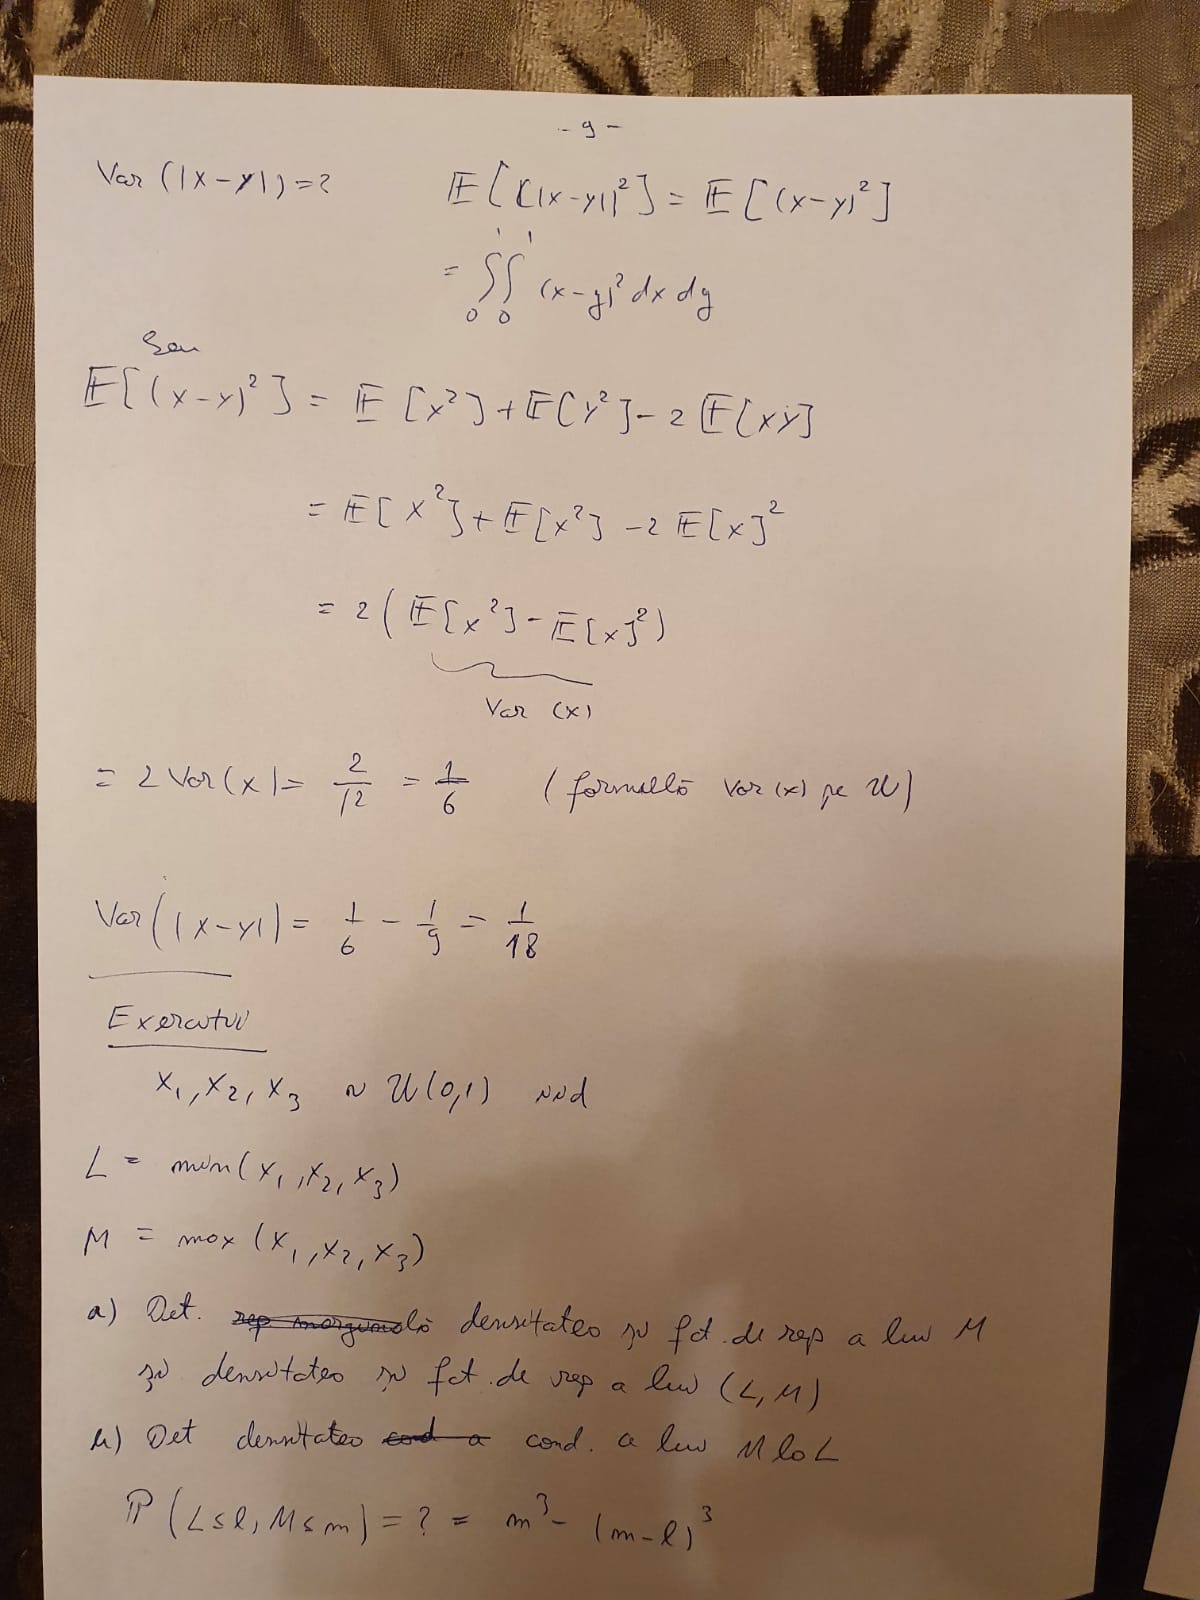 - 9 -
Var (|X-Y|)=? E[(|X-Y|)²] = E[(X-Y)²]
= ∫₀¹∫₀¹ (x-y)² dx dy
Sau
E[(X-Y)²] = E[X²]+E[Y²]-2E[XY]
= E[X²]+E[X²]-2E[X]²
= 2(E[X²]-E[X]²)
Var (X)
= 2 Var(X)= 2/12 = 1/6 (formulă Var(X) pe U)
Var(|X-Y|)= 1/6 - 1/9 = 1/18
Exercițiu
X₁, X₂, X₃ ~ U(0,1) iid
L = min(X₁, X₂, X₃)
M = max (X₁, X₂, X₃)
a) Det. densitatea și fct. de rep a lui M
și densitatea și fct. de rep a lui (L, M)
b) Det densitatea cond. a lui M la L
P(L≤l, M≤m)=? = m³-(m-l)³